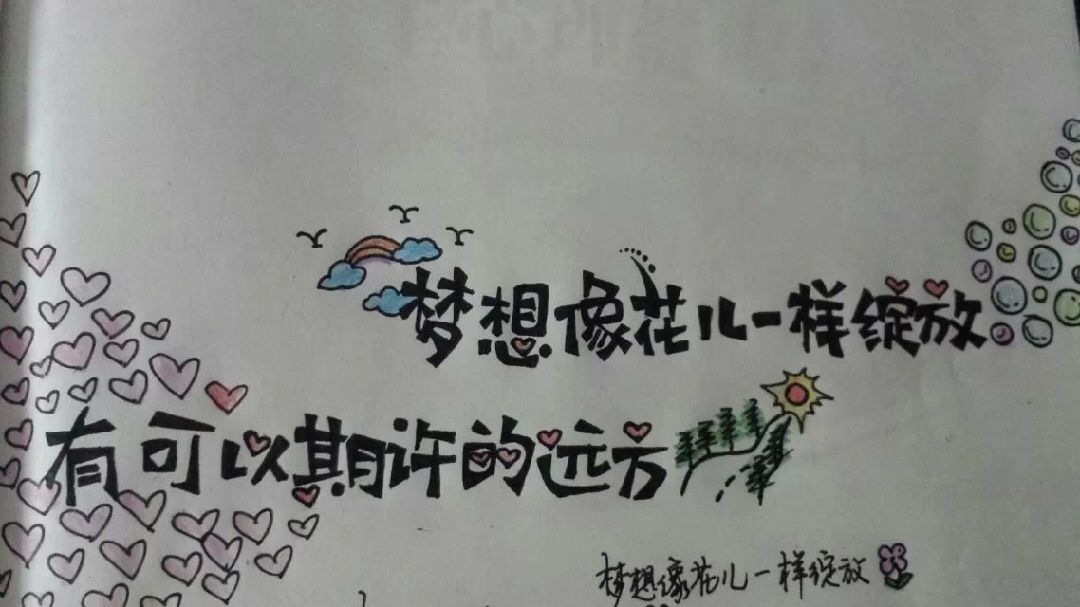 梦想像花儿一样绽放
有可以期许的远方
梦想像花儿一样绽放